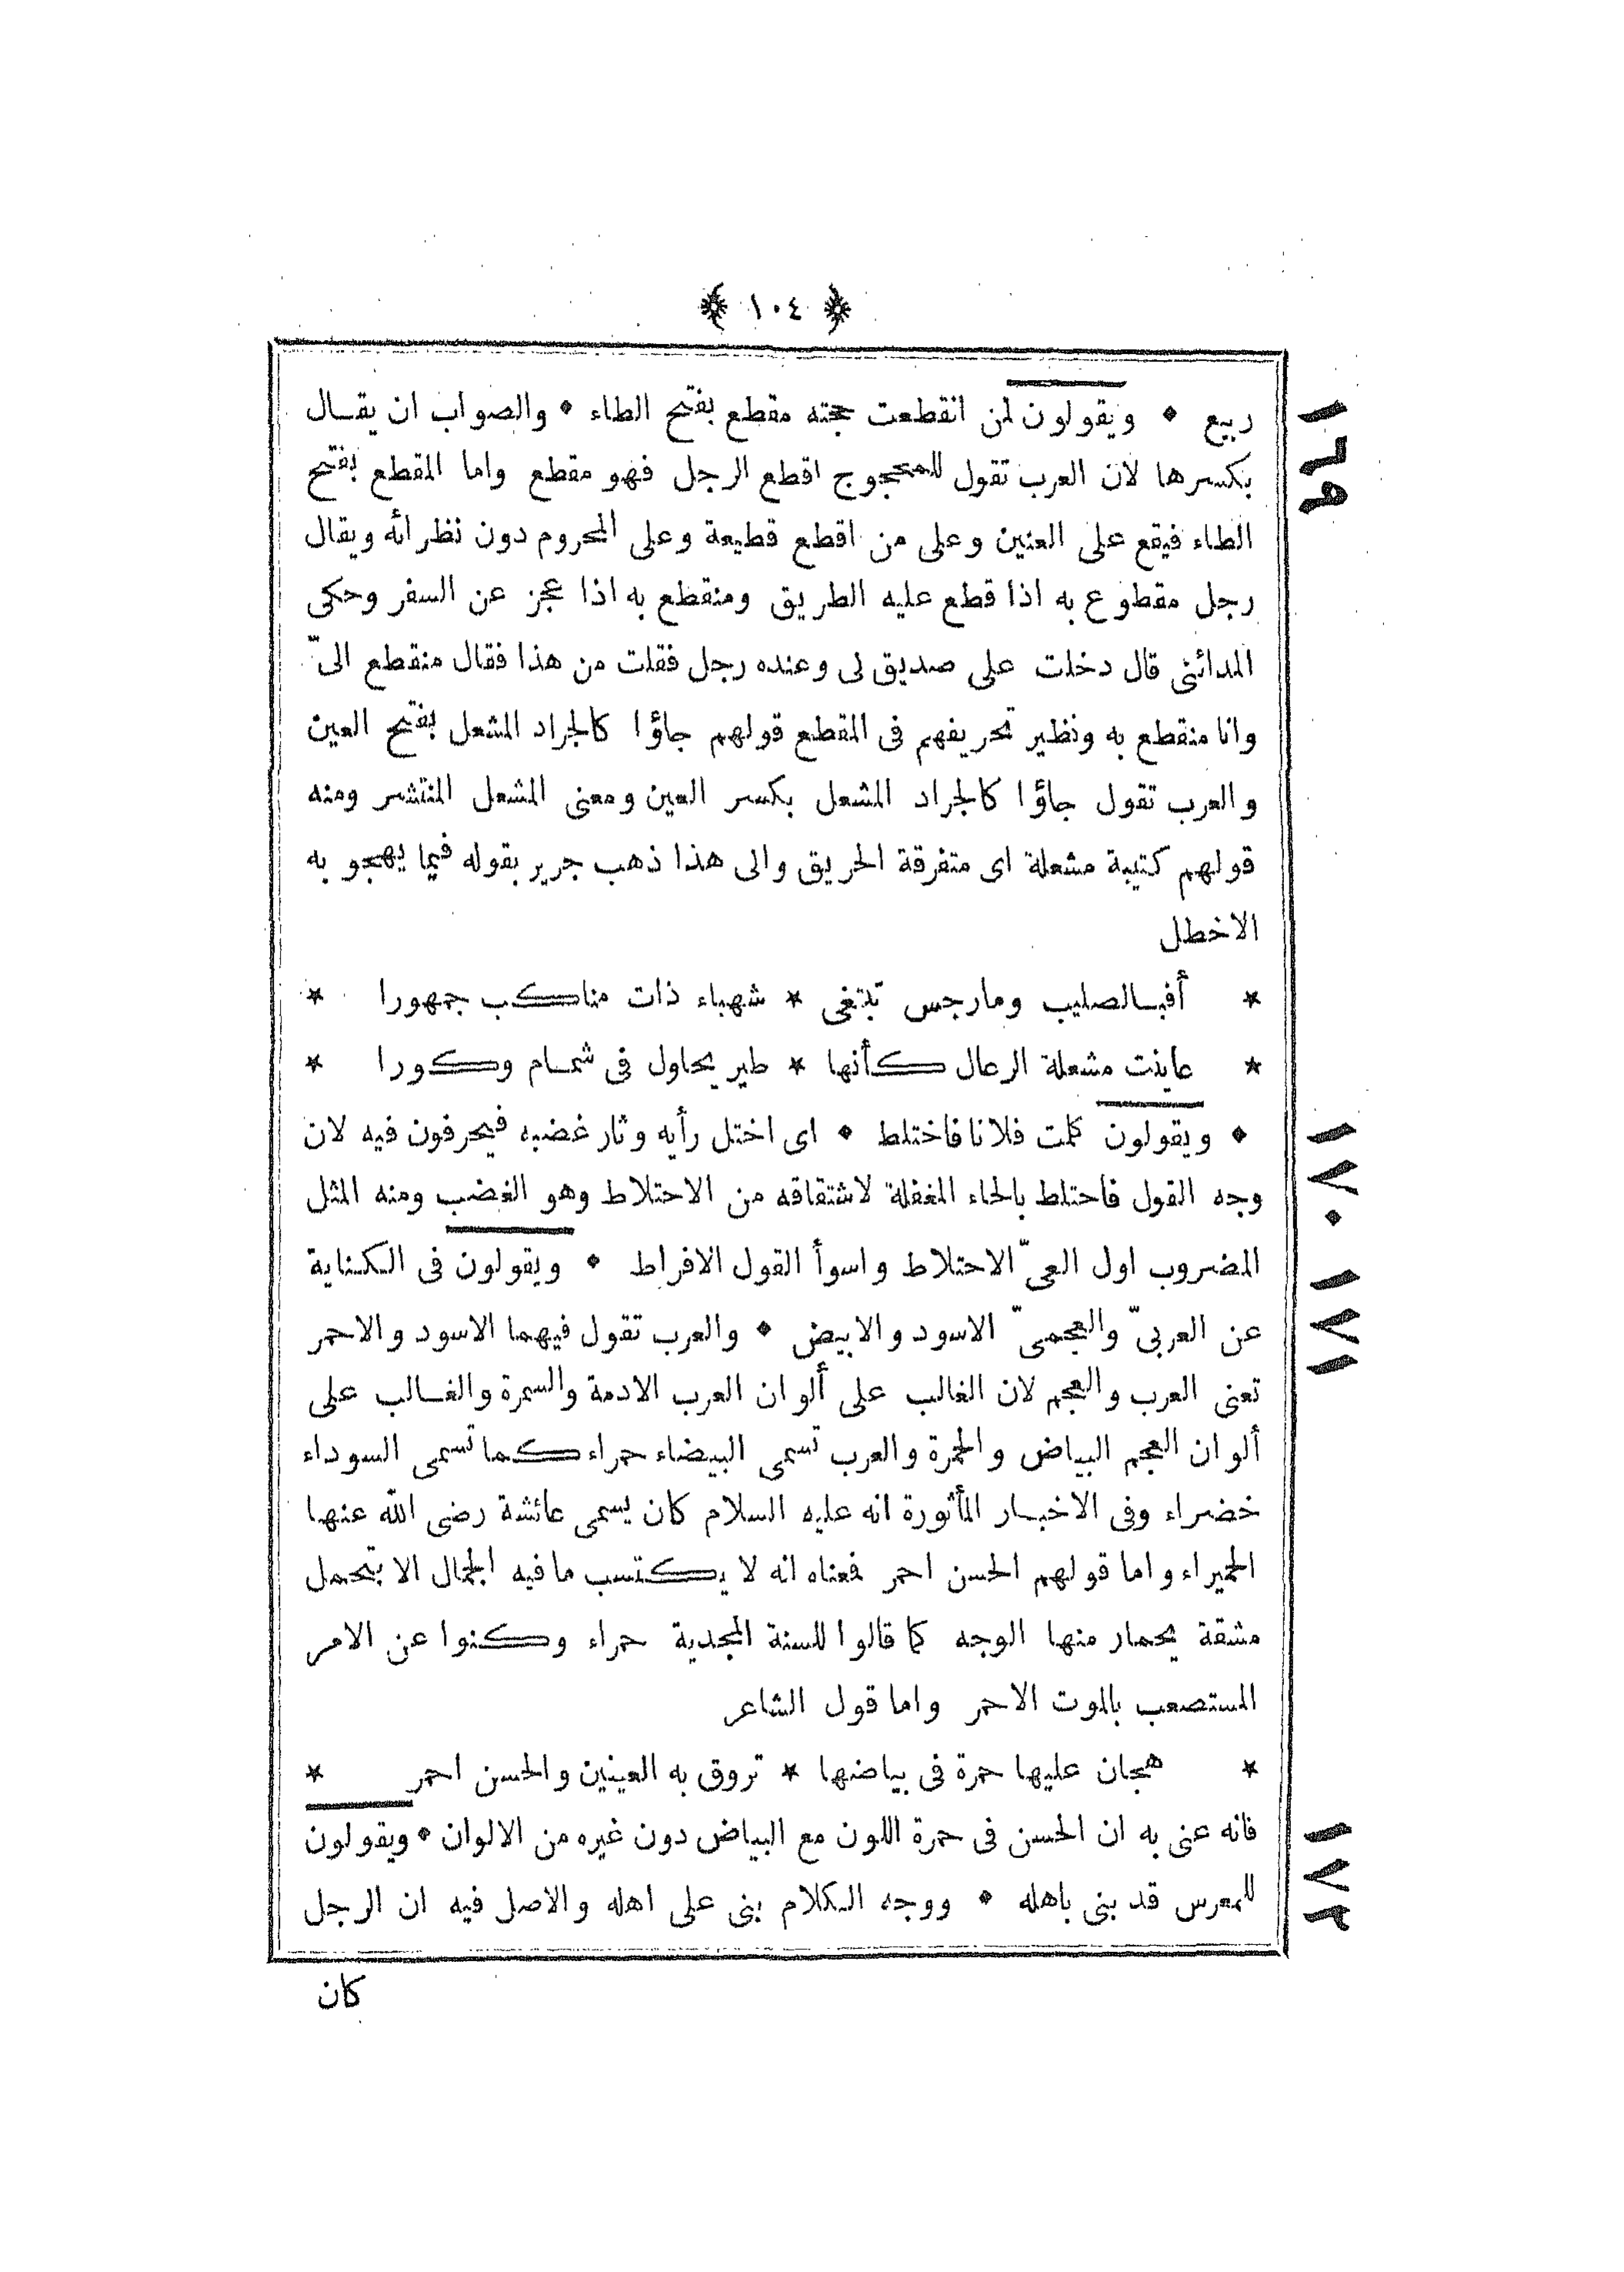 ﴿ ١٠٤ ﴾
ربيع * ويقولون لمن انقطعت حجته مقطع بفتح الطاء * والصواب ان يقال
١٦٩
بكسرها لان العرب تقول للمحجوج اقطع الرجل فهو مقطع واما المقطع بفتح
الطاء فيقع على العنين وعلى من اقطع قطيعة وعلى المحروم دون نظرائه ويقال
رجل مقطوع به اذا قطع عليه الطريق ومنقطع به اذا عجز عن السفر وحكى
المدائنى قال دخلت على صديق لى وعنده رجل فقلت من هذا فقال منقطع الىّ
وانا منقطع به ونظير تحريفهم فى المقطع قولهم جاؤا كالجراد المشعل بفتح العين
والعرب تقول جاؤا كالجراد المشعل بكسر العين ومعنى المشعل المنتشر ومنه
قولهم كتيبة مشعلة اى متفرقة الحريق والى هذا ذهب جرير بقوله فيما يهجو به
الاخطل
* أفبالصليب ومارجس تبتغى * شهباء ذات مناكب جمهورا *
* عاينت مشعلة الرعال كأنها * طير يحاول فى شمام وكورا *
* ويقولون كلمت فلانا فاختلط * اى اختل رأيه وثار غضبه فيحرفون فيه لان
١٧٠
وجه القول فاحتلط بالحاء المغفلة لاشتقاقه من الاحتلاط وهو الغضب ومنه المثل
المضروب اول العىّ الاحتلاط واسوأ القول الافراط * ويقولون فى الكناية
١٧١
عن العربىّ والعجمىّ الاسود والابيض * والعرب تقول فيهما الاسود والاحمر
تعنى العرب والعجم لان الغالب على ألوان العرب الادمة والسمرة والغالب على
ألوان العجم البياض والحمرة والعرب تسمى البيضاء حمراء كما تسمى السوداء
خضراء وفى الاخبار المأثورة انه عليه السلام كان يسمى عائشة رضى الله عنها
الحميراء واما قولهم الحسن احمر فمعناه انه لا يكتسب ما فيه الجمال الا بتحمل
مشقة يحمار منها الوجه كما قالوا للسنة المجدبة حمراء وكنوا عن الامر
المستصعب بالموت الاحمر واما قول الشاعر
* هجان عليها حمرة فى بياضها * تروق به العينين والحسن احمر *
فانه عنى به ان الحسن فى حمرة اللون مع البياض دون غيره من الالوان * ويقولون
١٧٢
للمعرس قد بنى باهله * ووجه الكلام بنى على اهله والاصل فيه ان الرجل
كان